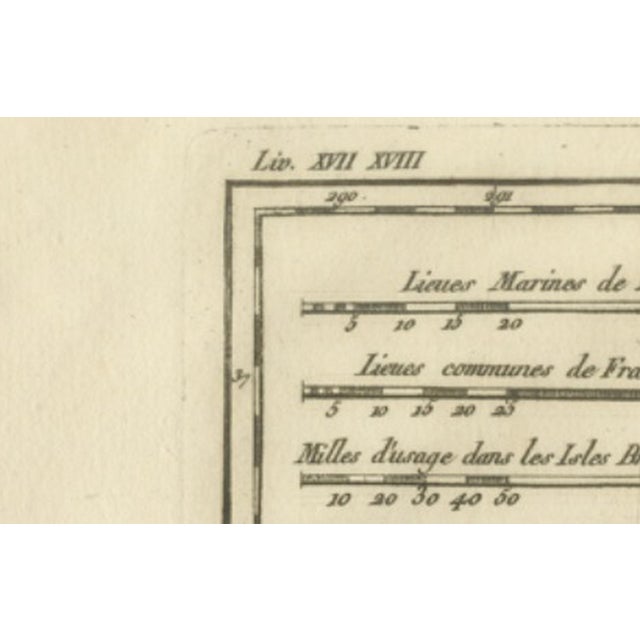 Liv. XVII XVIII
290. 291
Lieues Marines de
5 10 15 20
Lieues communes de
37
5 10 15 20 25
Milles d'usage dans les Isles
10 20 30 40 50